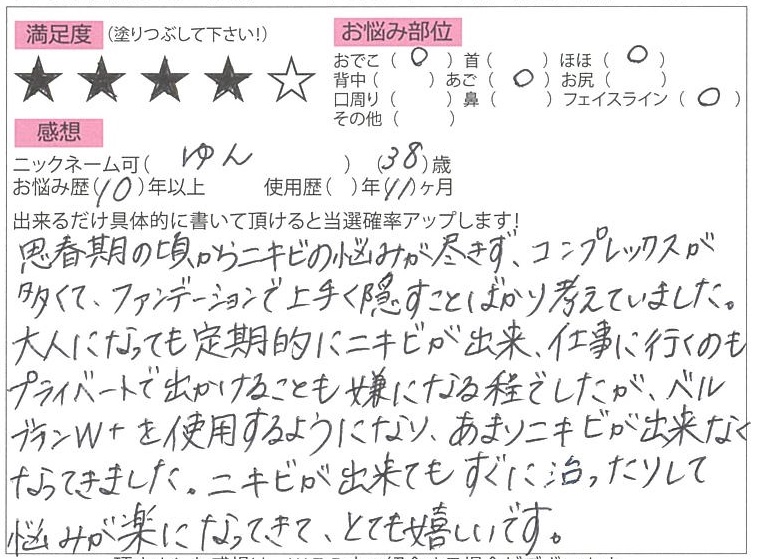 満足度 (塗りつぶして下さい!) お悩み部位
★★★★☆
おでこ ( ○ ) 首 (　) ほほ ( ○ )
背中 (　) あご ( ○ ) お尻 (　)
口周り (　) 鼻 (　) フェイスライン ( ○ )
その他 (　)
感想
ニックネーム可( ゆん ) (38)歳
お悩み歴(10)年以上 使用歴(　)年(11)ヶ月
出来るだけ具体的に書いて頂けると当選確率アップします!
思春期の頃からニキビの悩みが尽きず、コンプレックスが
多くて、ファンデーションで上手く隠すことばかり考えていました。
大人になっても定期的にニキビが出来、仕事に行くのも
プライベートで出かけることも嫌になる程でしたが、ベル
ブランW+を使用するようになり、あまりニキビが出来なく
なってきました。ニキビが出来てもすぐに治ったりして
悩みが楽になってきて、とても嬉しいです。